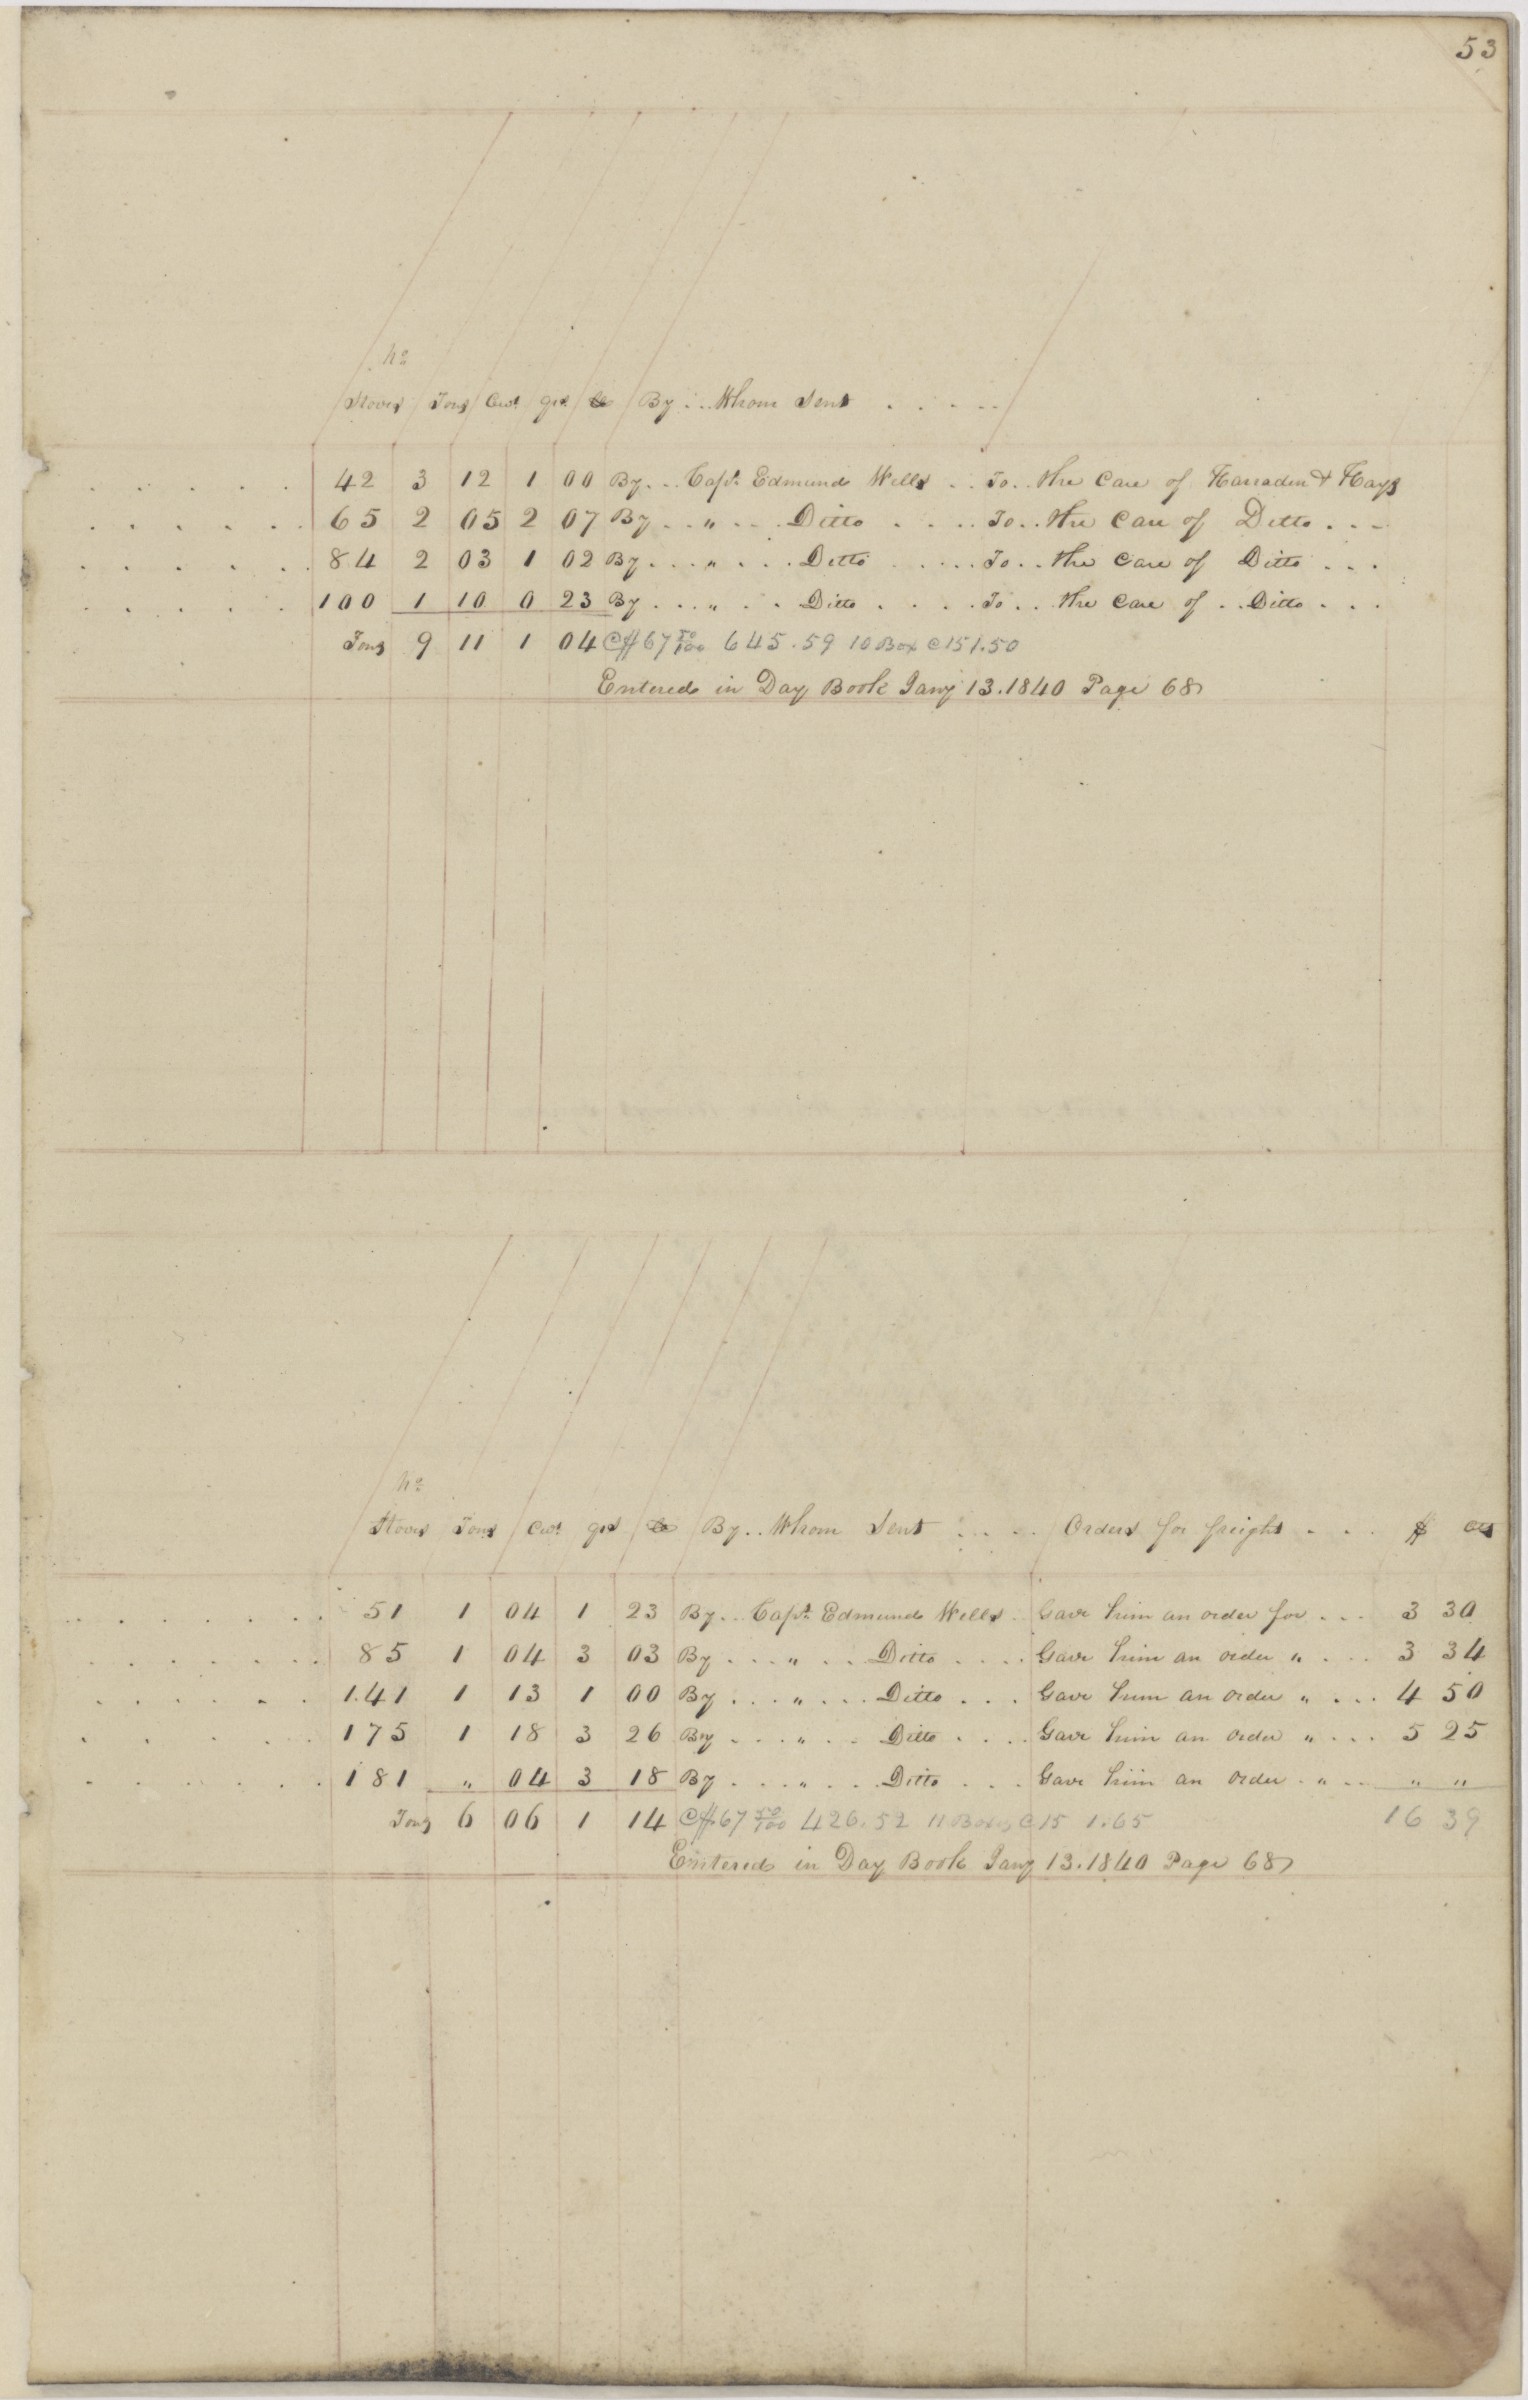 53
No
Stoves Tons Cwt qrs lb By . . Whom Sent . . . . .
. . . . . 42 3 12 1 00 By . . . Capt. Edmund Wells . . To . . the Care of Harraden & Hays
. . . . . . 65 2 05 2 07 By . . " . . . Ditto . . . . To . . the Care of Ditto . . .
. . . . . . 84 2 03 1 02 By . . . " . . . Ditto . . . . . To . . the Care of Ditto . . .
. . . . . 100 1 10 0 23 By . . . " . . Ditto . . . . To . . the Care of . . Ditto . . .
Tons 9 11 1 04 @ $67 50/100 645.59 10 Box @ 15 1.50
Entered in Day Book Jany 13. 1840 Page 68
No
Stoves Tons Cwt qrs lb By . . Whom Sent . . . . Orders for freight . . . $ cts
. . . . . . . 51 1 04 1 23 By . . Capt. Edmund Wells . Gave him an order for . . . 3 30
. . . . . . . 85 1 04 3 03 By . . . " . . . Ditto . . . . Gave him an order " . . . 3 34
. . . . . . 141 1 13 1 00 By . . . " . . . Ditto . . . Gave him an order " . . . 4 50
. . . . . . 175 1 18 3 26 By . . . " . . Ditto . . . . Gave him an order " . . . 5 25
. . . . . . . 181 " 04 3 18 By . . . " . . . Ditto . . . Gave him an order . " . . " "
Tons 6 06 1 14 @ $67 50/100 426.52 11 Boxes @ 15 1.65 16 39
Entered in Day Book Jany 13. 1840 Page 68